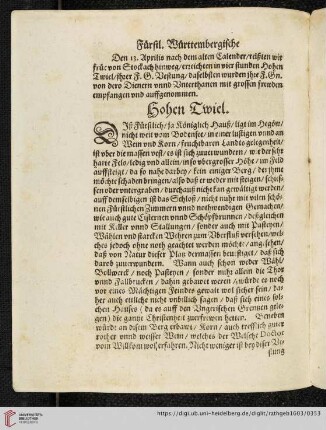 Fürstl. Württembergische
Den 13. Aprilis nach dem alten Calender / raisten wir
früe von Stockach hinweg / erreichten in vier stunden Hohen
Twiel / ihrer F. G. Vestung / daselbsten wurden ihre F. Gn.
von dero Dienern vnnd Vnterthanen mit grossen frewden
empfangen vnd auffgenommen.
Hohen Twiel.
DIß Fürstlich / ja Königlich Hauß / ligt im Hegöw /
nicht weit vom Bodensee / in einer lustigen vnnd an
Wein vnd Korn / fruchtbaren Landts gelegenheit /
ist vber die massen vest / es ist sich zuverwundern / wie der sehr
harte Felß / ledig vnd allein / inn vbergrosser Höhe / im Feld
auffsteigt / da so nahe darbey / kein einiger Berg / der ihme
möchte schaden bringen / also daß er weder mit steigen / schies-
sen oder vntergraben / durchauß nicht kan gewältiget werden /
auff demselbigen ist das Schloß / nicht nuhr mit vielen schö-
nen Fürstlichen Zimmern vnnd nothwendigen Gemachen /
wie auch gute Cisternen vnnd Schöpfbrunnen / deßgleichen
mit Keller vnnd Stallungen / sonder auch mit Pasteyen /
Wählen vnd starcken Wehren zum Vberfluß versehen / wel-
ches jedoch ohne noth geachtet werden möchte / angesehen /
daß von Natur dieser Platz dermassen bevestiget / daß sich
darob zuverwundern. Wann auch schon weder Wähl /
Bollwerck / noch Pasteyen / sonder nicht allein die Thor
vnnd Fallbrucken / dahin gebawet weren / würde es noch
vor eines Mächtigen Feindes gewalt wol sicher sein / da-
her auch etliche nicht vnbillich sagen / daß sich eines sol-
chen Hauses (da es auff den Vngrischen Grentzen gele-
gen) die gantze Christenheit zuerfrewen hette. Beneben
würdt an disem Berg erbawt / Korn / auch trefflich guter
rother vnnd weisser Wein / welches der Welsche Doctor
vom Willkom wol erfahren. Nicht weniger ist bey diser Ve-
stung
UNIVERSITÄTS-
BIBLIOTHEK
HEIDELBERG
https://digi.ub.uni-heidelberg.de/diglit/rathgeb1603/0353